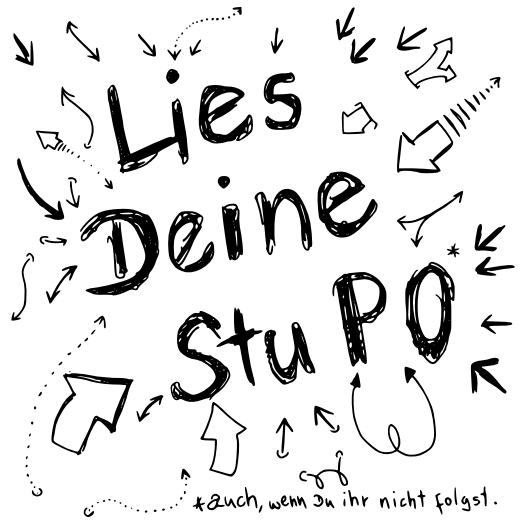 Lies
Deine
Stu PO*
*auch, wenn Du ihr nicht folgst.